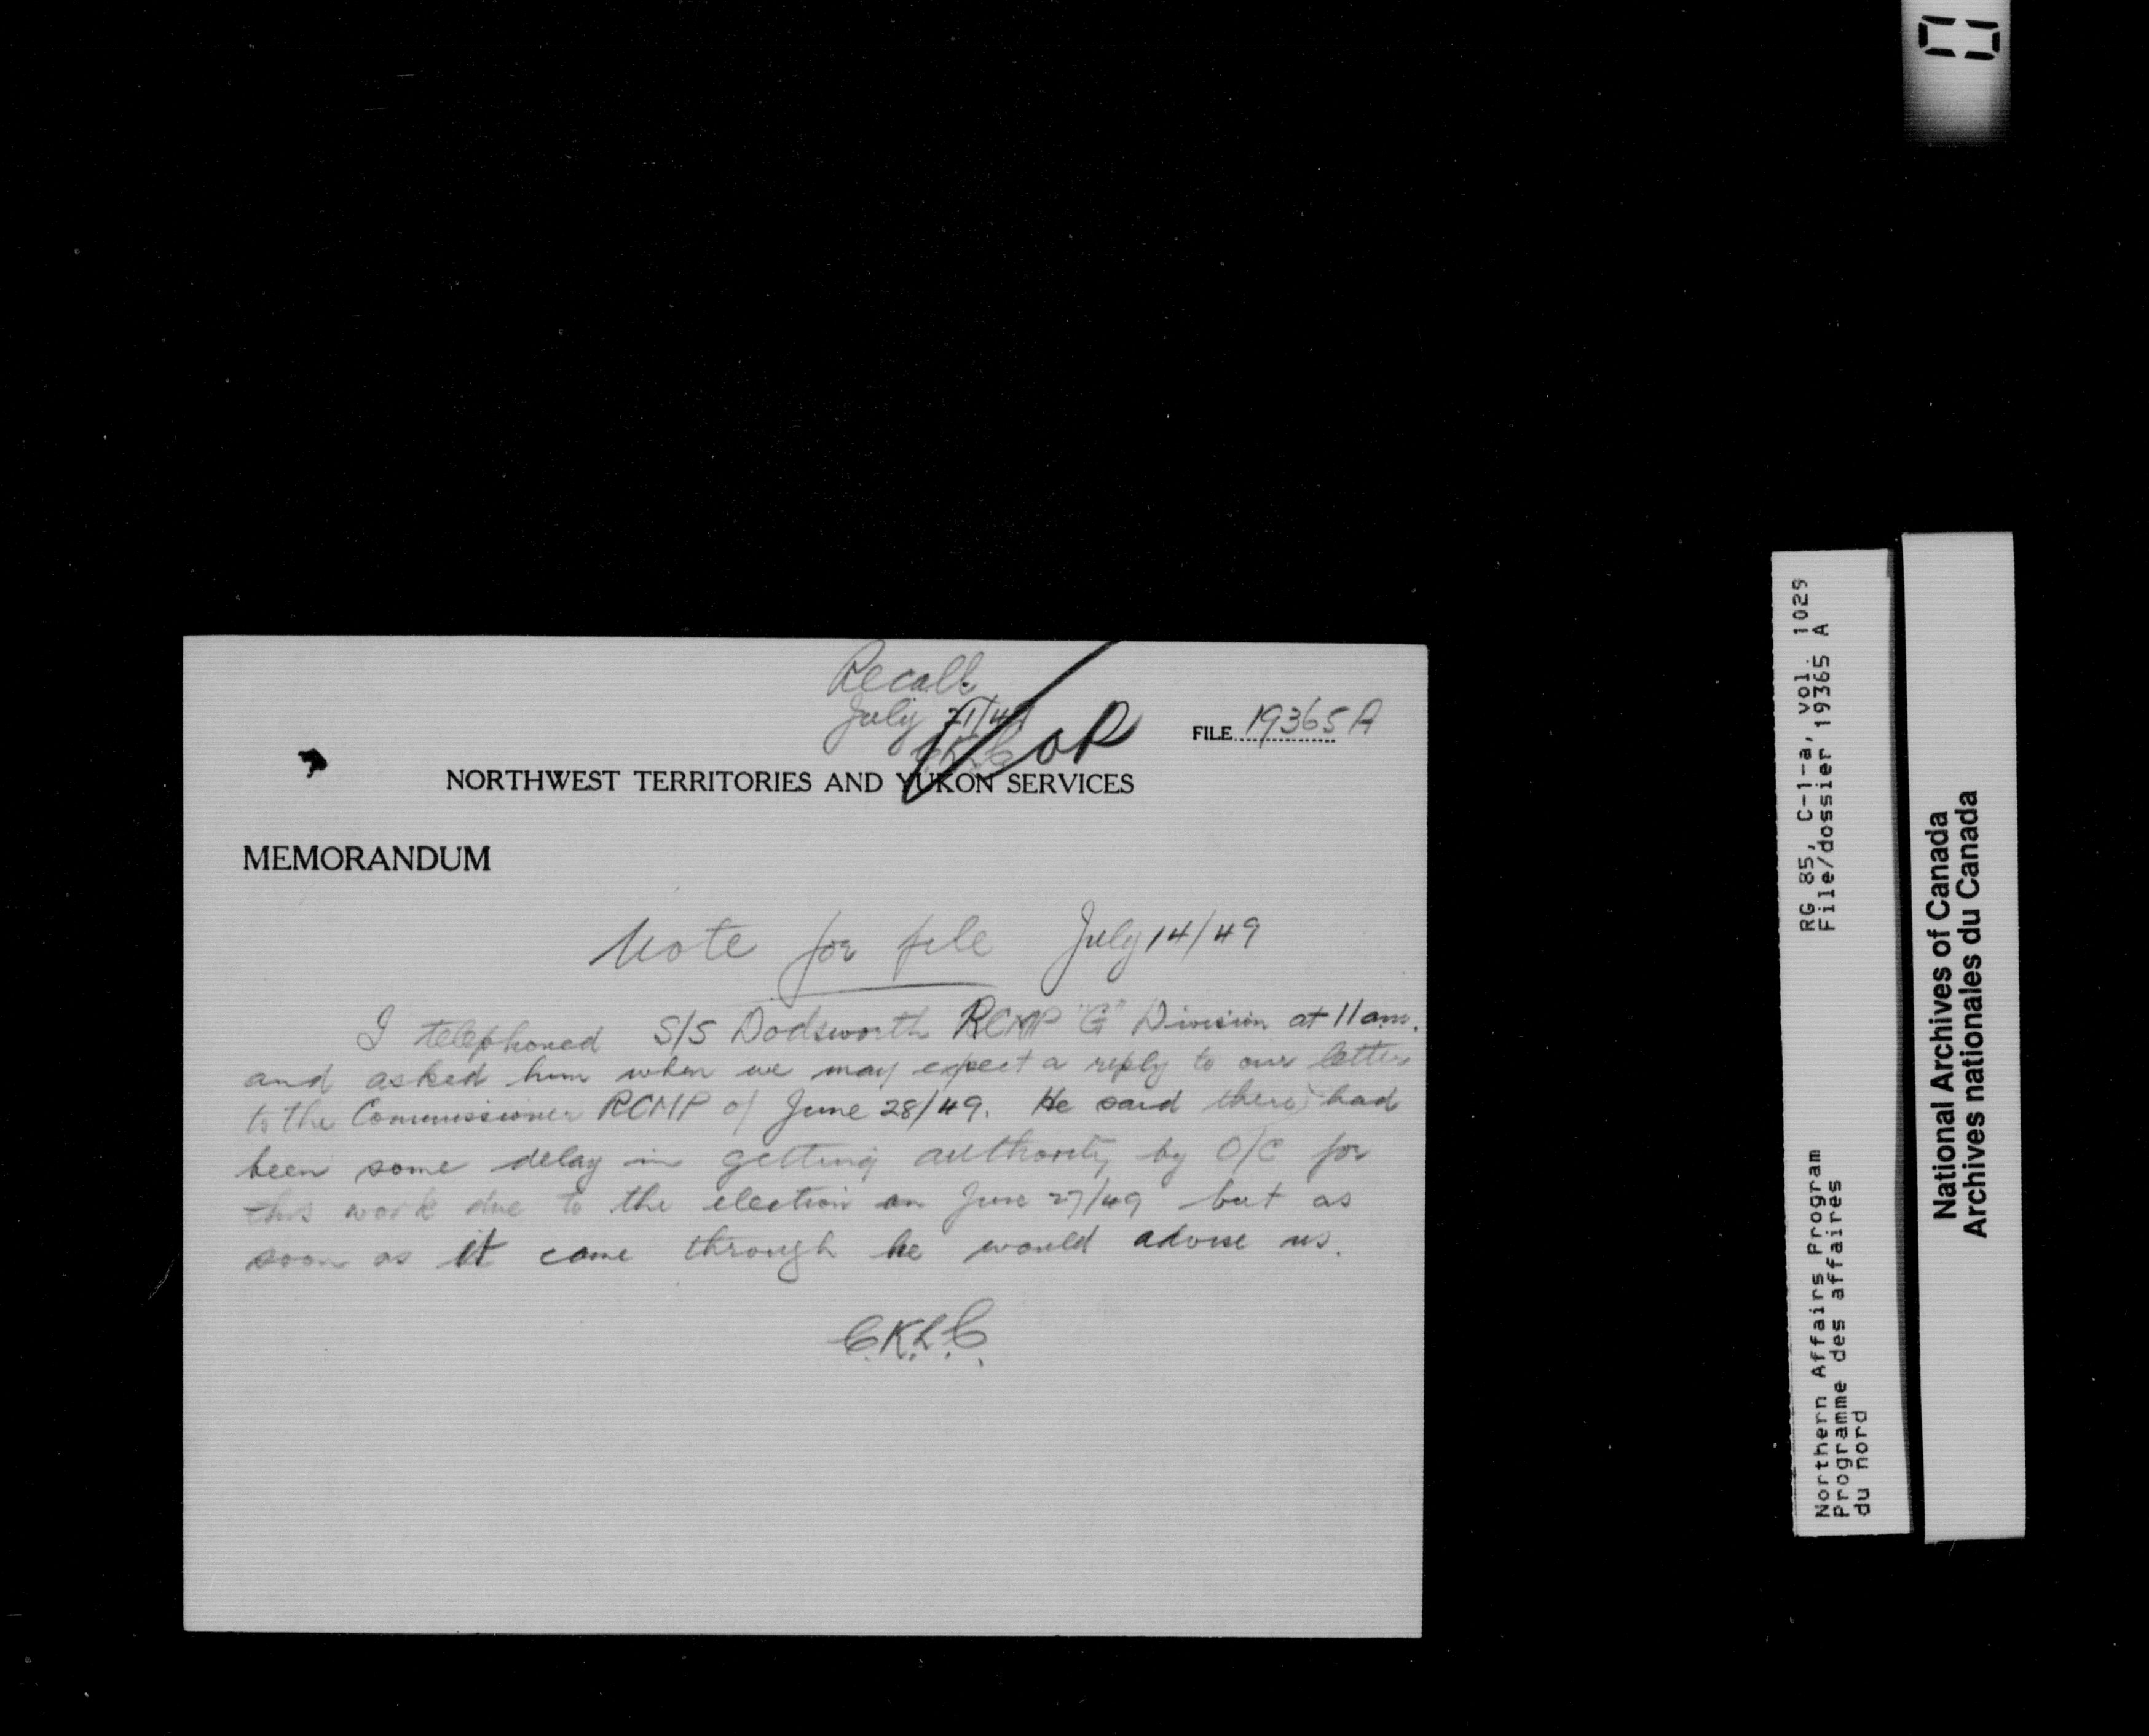 Recall
July 21/49
C.K.L.C.
OR
FILE 19365 A
NORTHWEST TERRITORIES AND YUKON SERVICES
MEMORANDUM
Note for file July 14/49
I telephoned S/S Dodsworth RCMP "G" Division at 11 am.
and asked him when we may expect a reply to our letter
to the Commissioner RCMP of June 28/49. He said there had
been some delay in getting authority by O/C for
this work due to the election on June 27/49 but as
soon as it came through he would advise us.
C.K.L.C.
RG 85, C-1-a, vol. 1029
File/dossier 19365 A
Northern Affairs Program
Programme des affaires
du nord
National Archives of Canada
Archives nationales du Canada